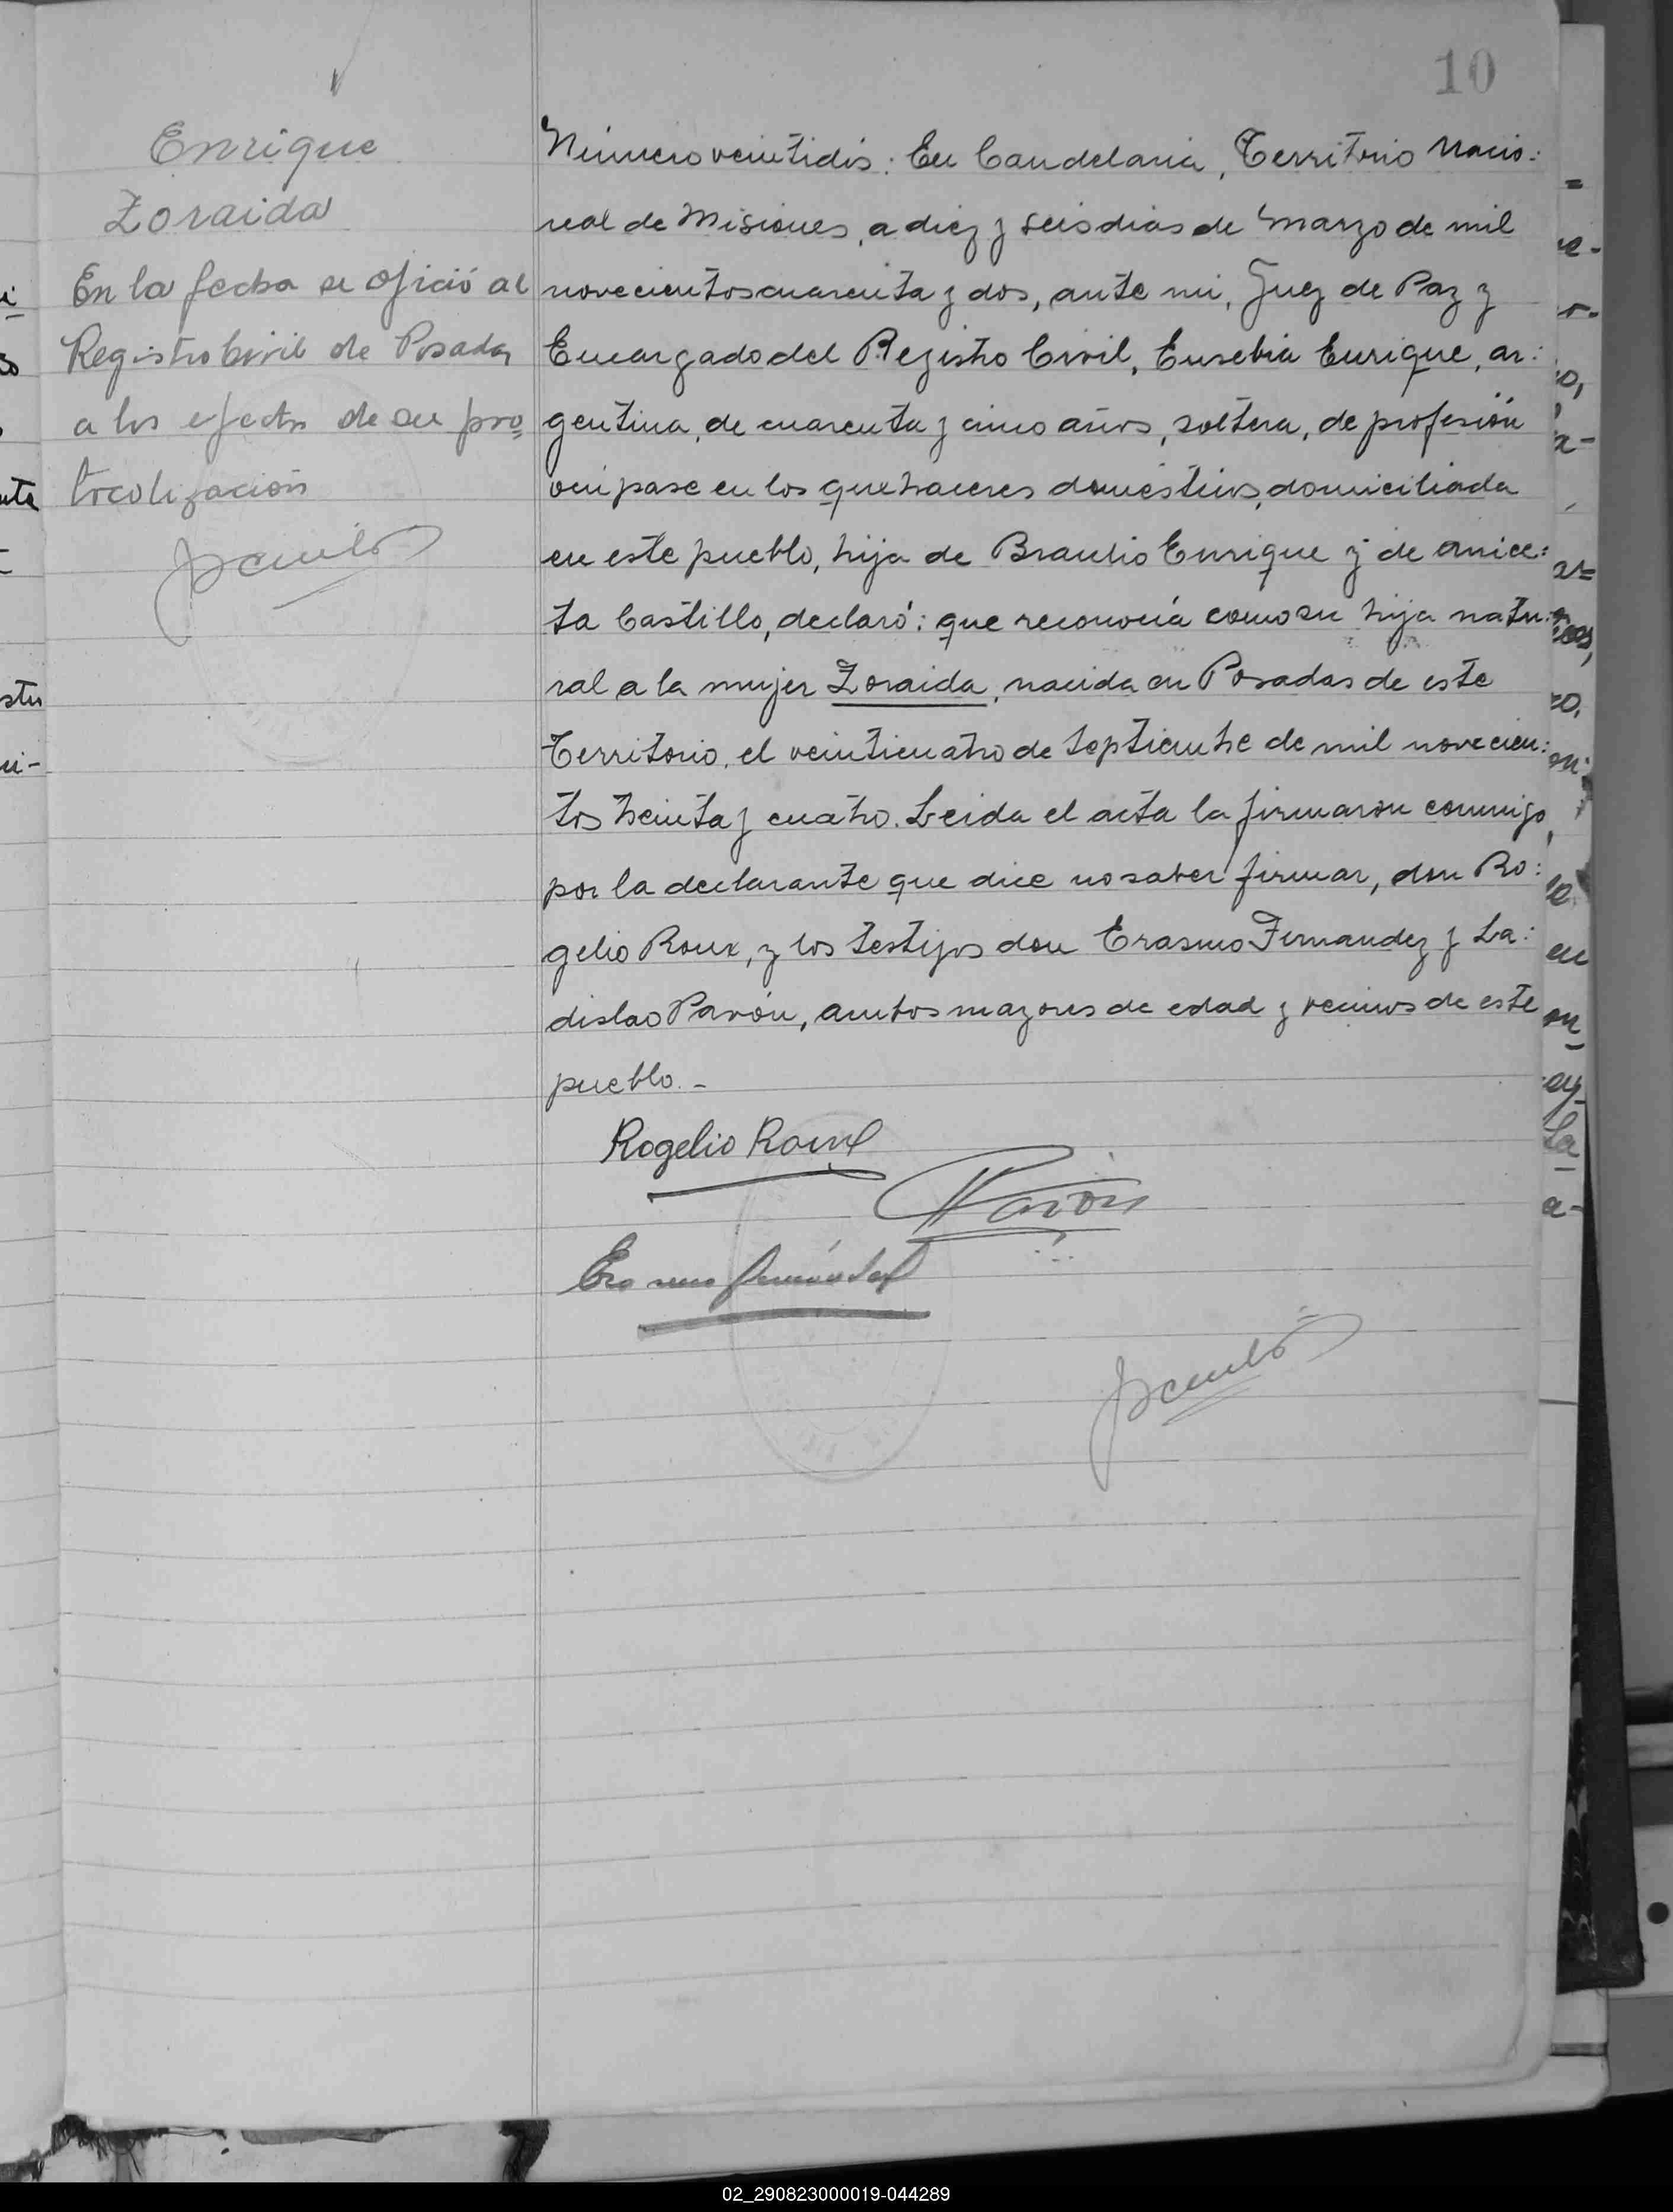 10
Enrique
Zoraida
En la fecha se ofició al
Registro Civil de Posadas
a los efectos de su pro=
tocolización
Número veintidós: En Candelaria, Territorio Nacio=
nal de Misiones, a diez y seis dias de Marzo de mil
novecientos cuarenta y dos, ante mi, Juez de Paz y
Encargado del Registro Civil, Eusebia Enrique, ar=
gentina, de cuarenta y cinco años, soltera, de profesión
ocúpase en los quehaceres domésticos, domiciliada
en este pueblo, hija de Braulio Enrique y de Anice=
ta Castillo, declaró: que reconocía como su hija natu=
ral a la mujer Zoraida, nacida en Posadas de este
Territorio, el veinticuatro de Septiembre de mil novecien=
tos treinta y cuatro. Leida el acta la firmaron conmigo,
por la declarante que dice no saber firmar, don Ro=
gelio Roux, y los testigos don Erasmo Fernandez y La=
dislao Pavón, ambos mayores de edad y vecinos de este
pueblo.-
Rogelio Roux
Pavón
Erasmo Fernández
02_290823000019-044289